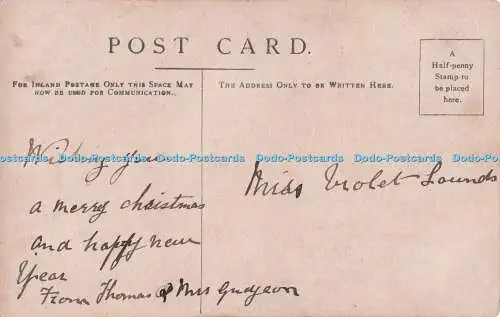 POST CARD.
FOR INLAND POSTAGE ONLY THIS SPACE MAY
NOW BE USED FOR COMMUNICATION..
THE ADDRESS ONLY TO BE WRITTEN HERE.
A
Half-penny
Stamp to
be placed
here.
Wishing you
a merry christmas
and happy new
year
From Thomas & Mrs Gudgeon
Miss Violet Lounds
Dodo-Postcards Dodo-Postcards Dodo-Postcards Dodo-Postcards Dodo-Postcards Dodo-Postcards